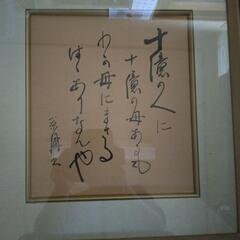 十億の人に
十億の母あるも
わが母にまさる
母ありなんや